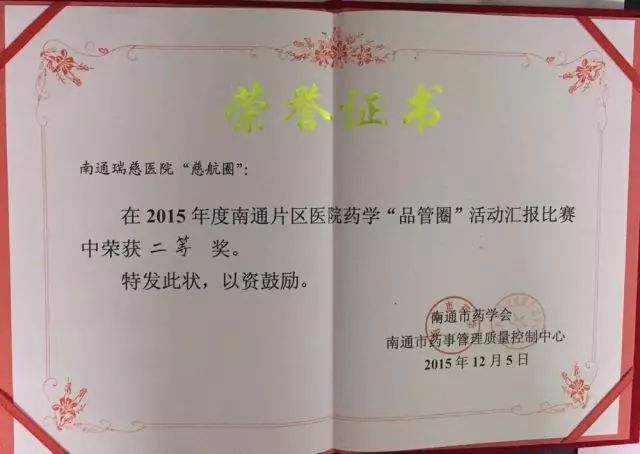 荣誉证书
南通瑞慈医院“慈航圈”：
在2015年度南通片区医院药学“品管圈”活动汇报比赛
中荣获 二等 奖。
特发此状，以资鼓励。
南通市药学会
南通市药事管理质量控制中心
2015年12月5日